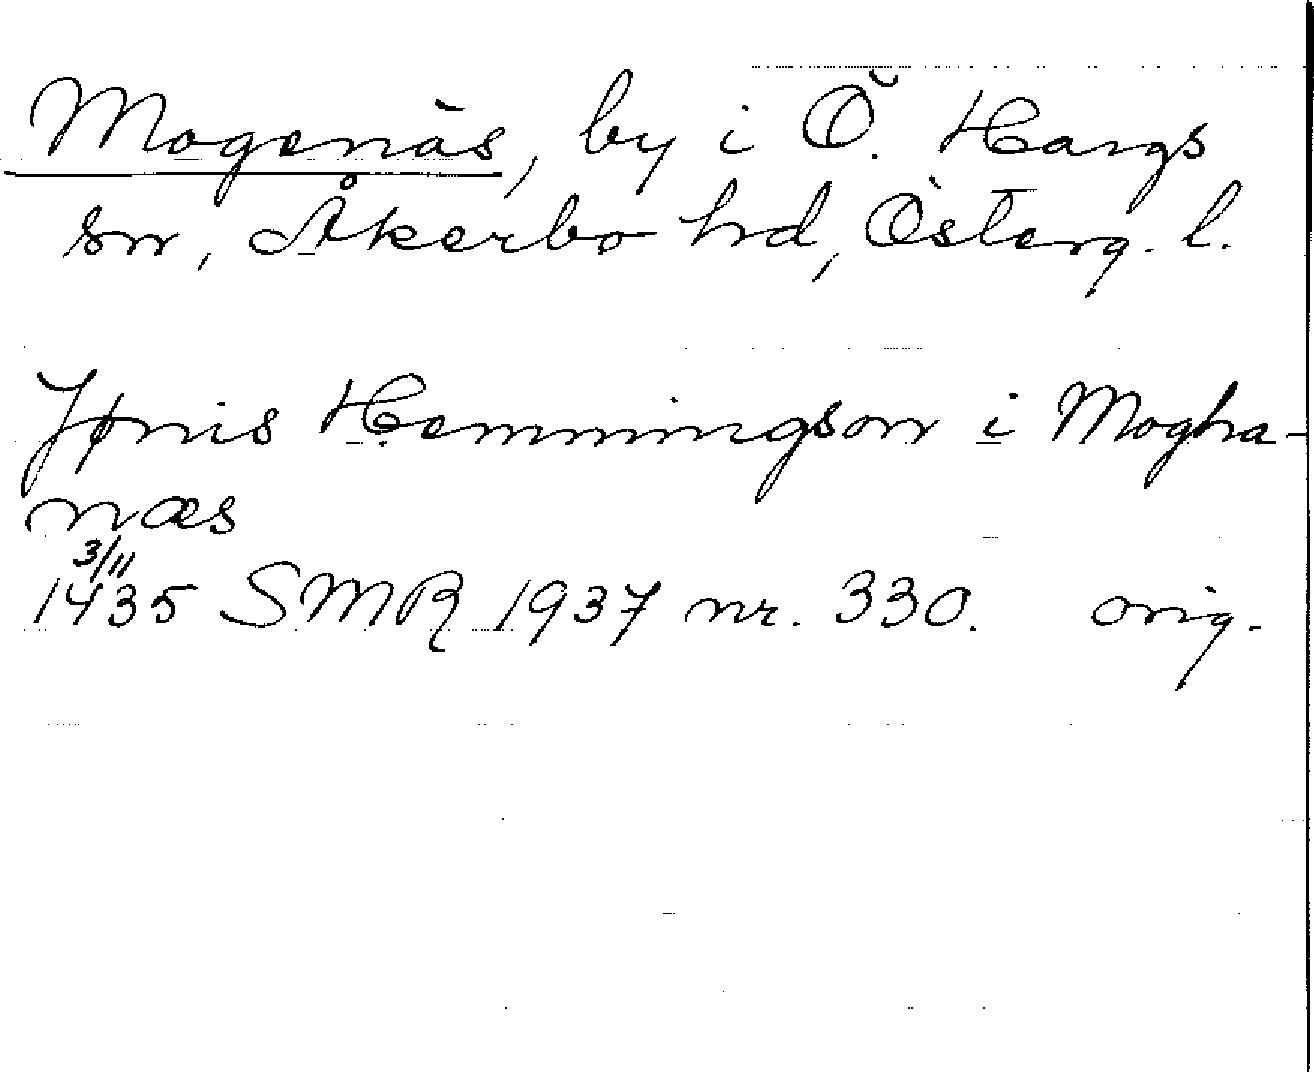 Mogenäs, by i Ö. Hargs
sn, Åkerbo hd, Österg. l.
Jønis Hemmingson i Mogha-
næs
3/11
1435 SMR 1937 nr. 330. orig.